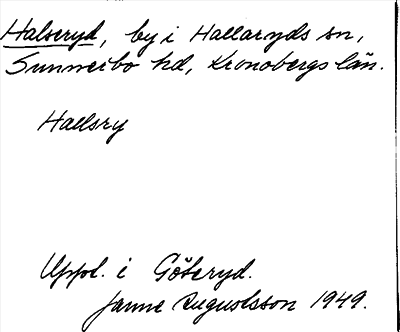 Halseryd, by i Hallaryds sn,
Sunnerbo hd, Kronobergs län.
Hallsry
Uppl. i Göteryd.
Janne Augustsson 1949.